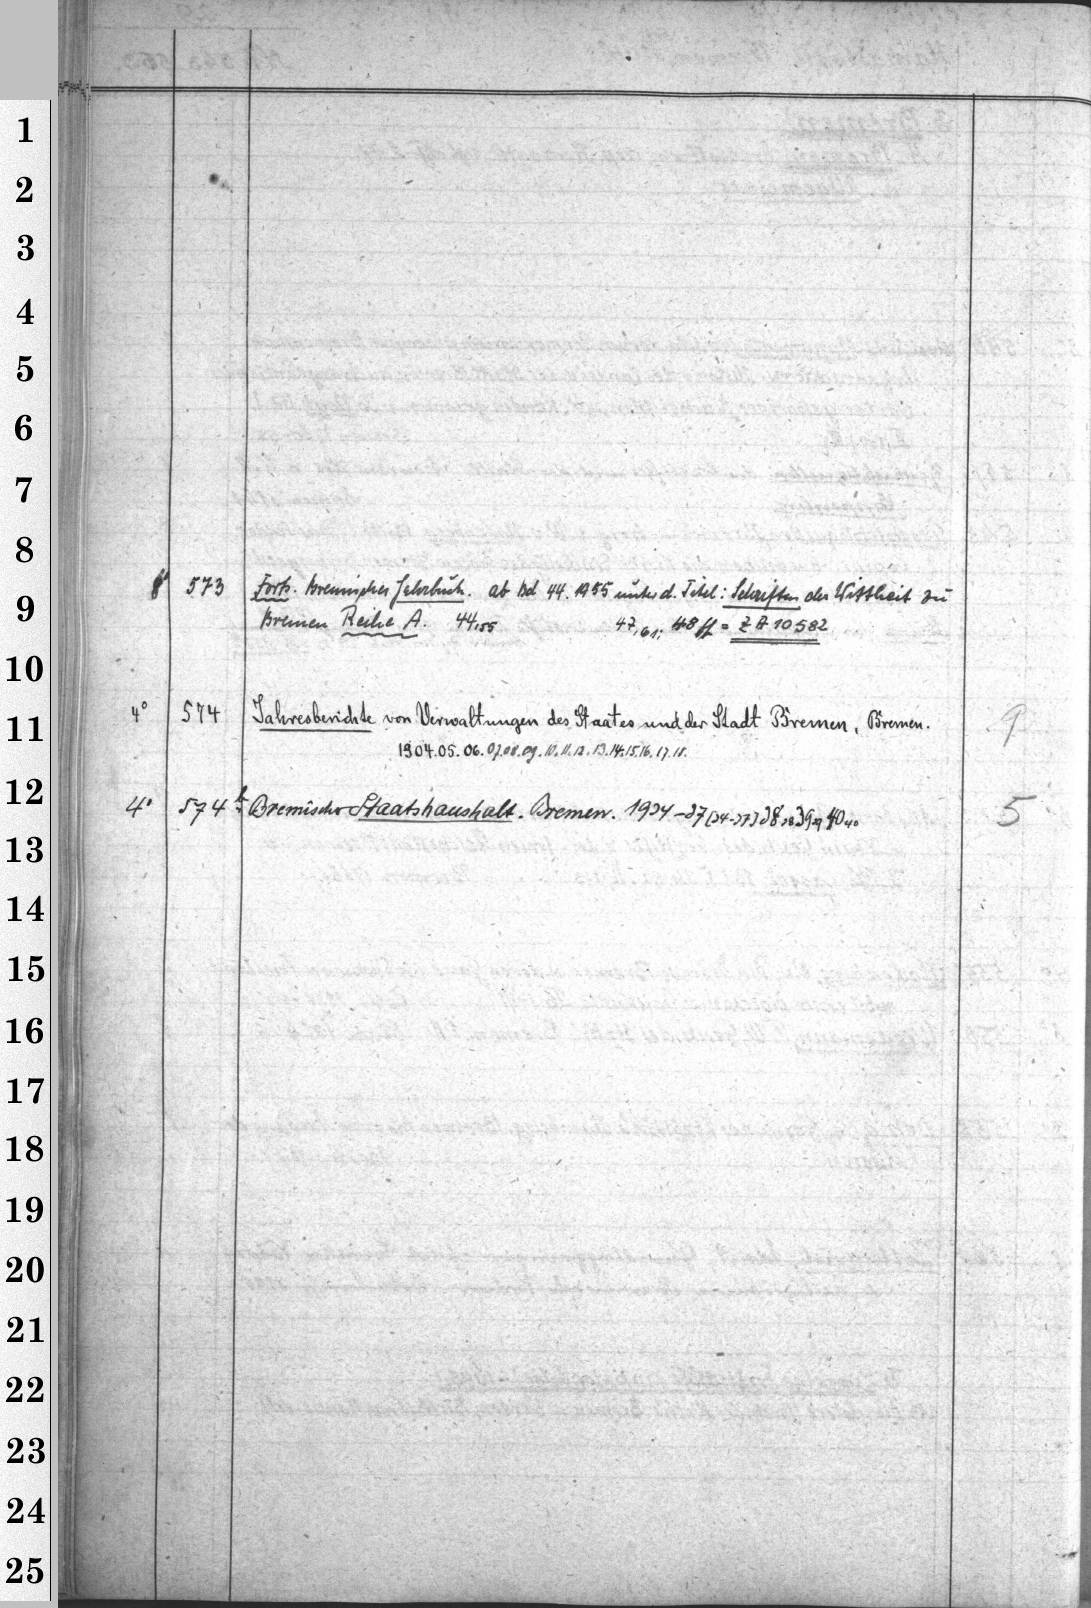 1
2
3
4
5
6
7
8
8° 573 Forts. Bremisches Jahrbuch. ab Bd 44. 1955 unter d. Titel: Schriften der Wittheit zu
9
Bremen Reihe A. 44,55 47,61; 48 ff = Z A 10582
10
4° 574 Jahresberichte von Verwaltungen des Staates und der Stadt Bremen, Bremen. 9
11
1904.05.06.07.08.09.10.11.12.13.14.15.16.17.18.
12
4° 574 b Bremischer Staatshaushalt. Bremen. 1934-37(34-37)38,38 39,39 40,40 5
13
14
15
16
17
18
19
20
21
22
23
24
25